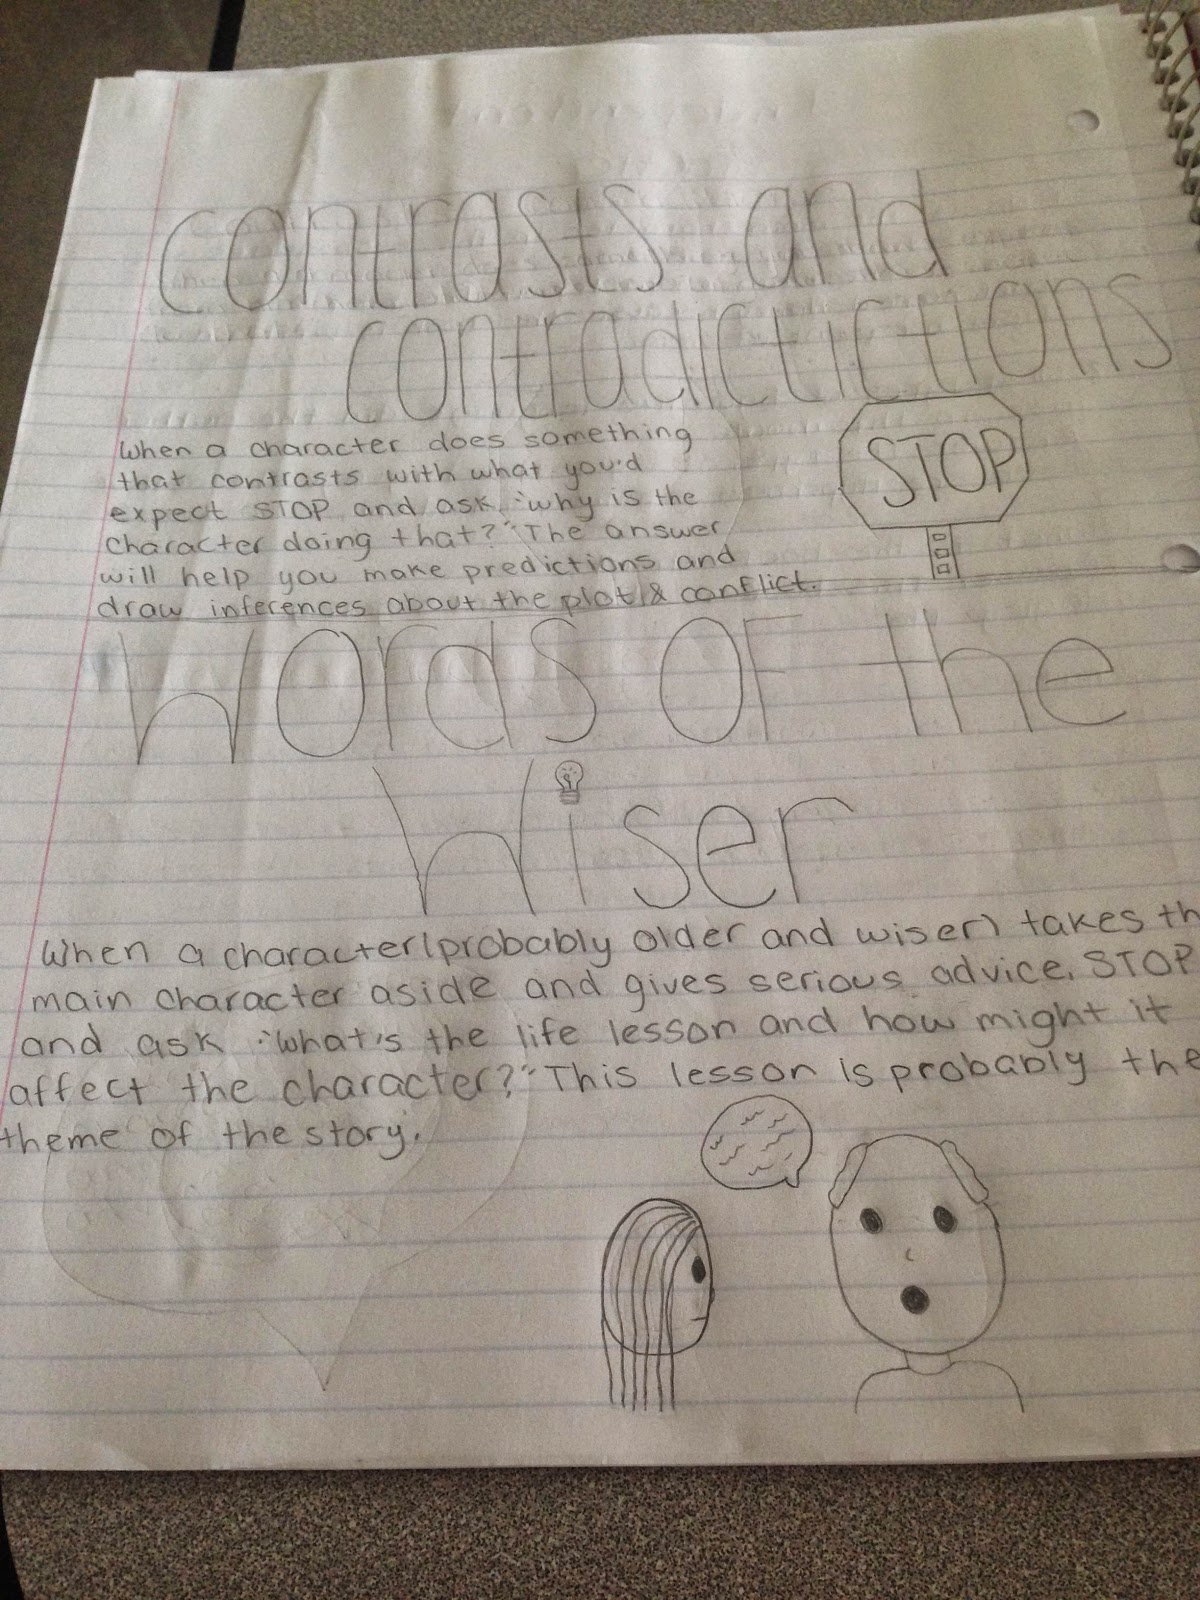 contrasts and
contradictictions
When a character does something
that contrasts with what you'd
expect STOP and ask, "why is the
character doing that?" The answer
will help you make predictions and
draw inferences about the plot & conflict.
STOP
Words of the
Wiser
When a character (probably older and wiser) takes th
main character aside and gives serious advice, STOP
and ask "What's the life lesson and how might it
affect the character?" This lesson is probably the
theme of the story.